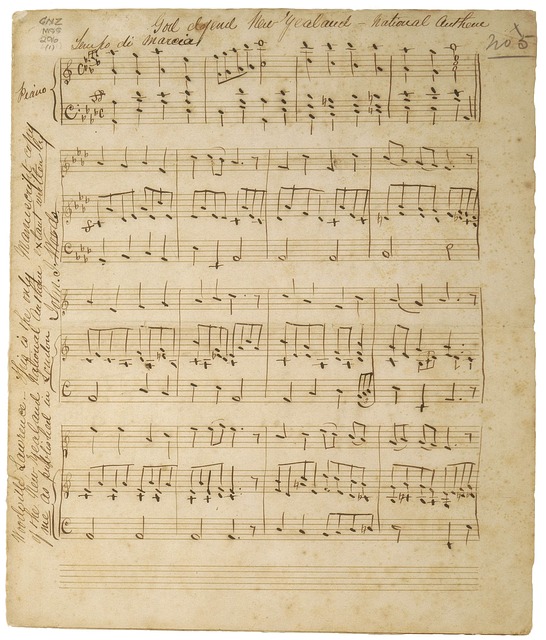 GNZ
MSS
2016
(1)
God defend New Zealand – National Anthem
Tempo di Marcia
no 5
Piano
Woodville Lawrence – This is the only manuscript copy
of the New Zealand National Anthem extant written by
me as published in London